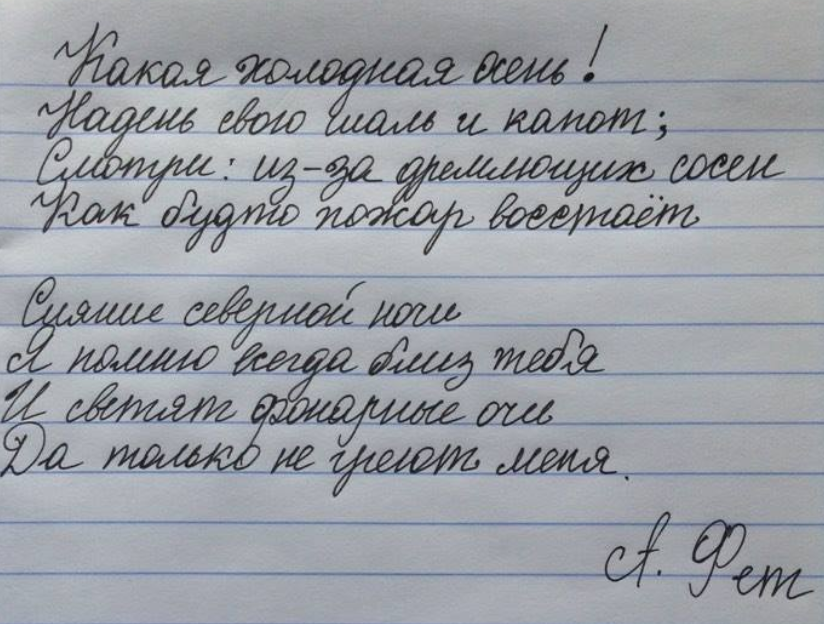 Какая холодная осень!
Надень свою шаль и капот;
Смотри: из-за дремлющих сосен
Как будто пожар восстаёт
Сияние северной ночи
Я помню всегда близ тебя
И светят фонарные очи
Да только не греют меня.
А. Фет